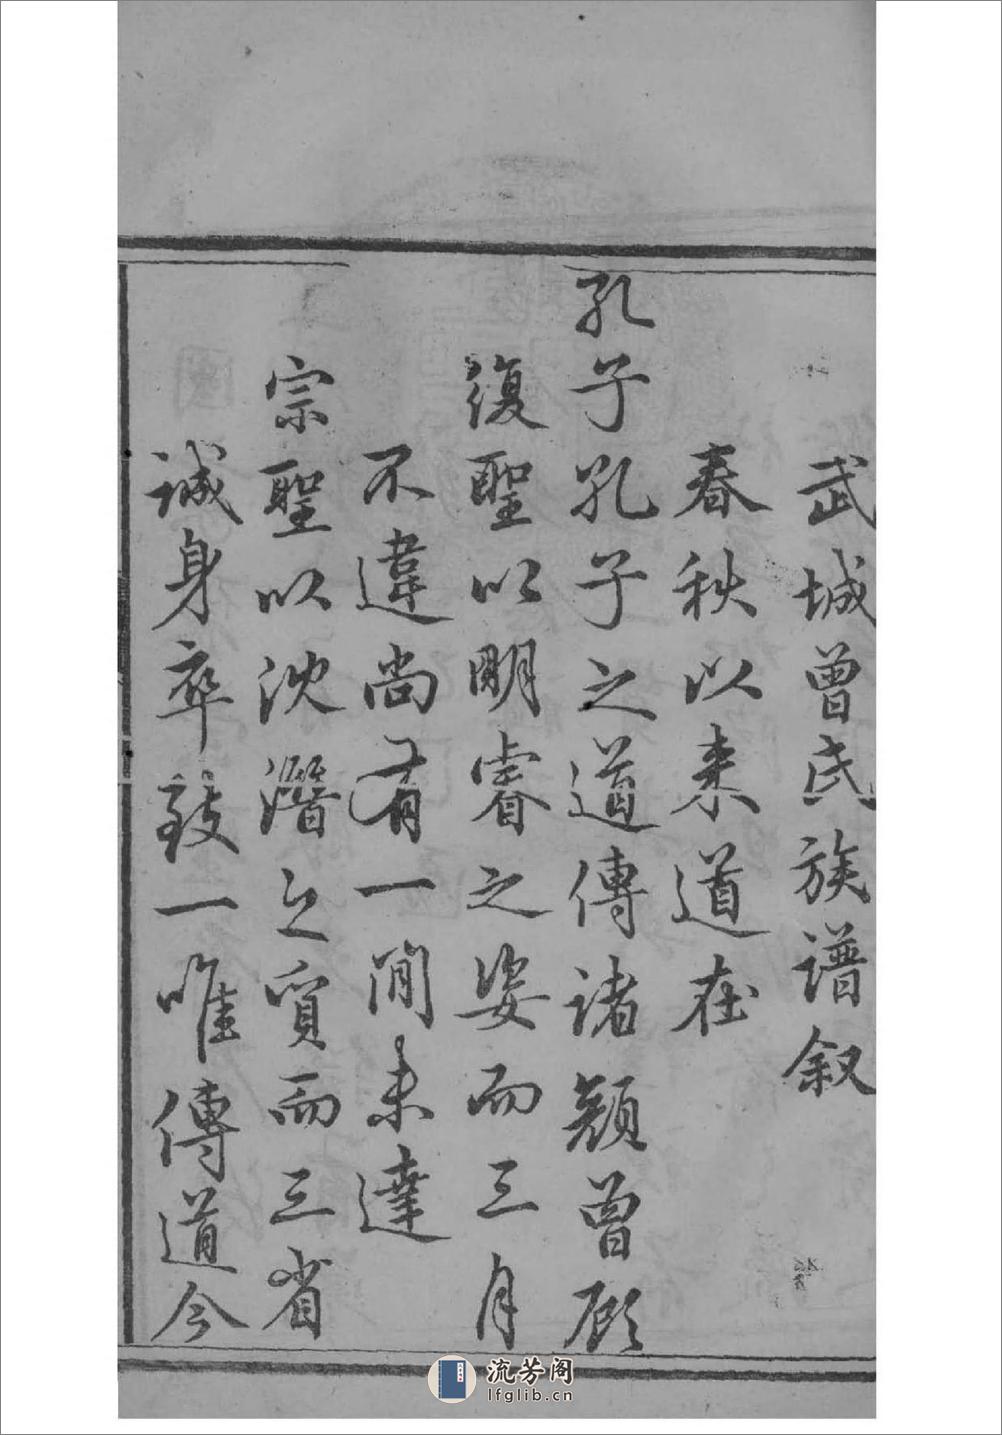 武城曾氏族譜叙
春秋以来道在
孔子孔子之道傳诸顏曾顾
復聖以明睿之姿而三月
不違尚有一间未達
宗聖以沈潛之質而三省
诚身卒致一唯傳道今
流芳阁
lfglib.cn